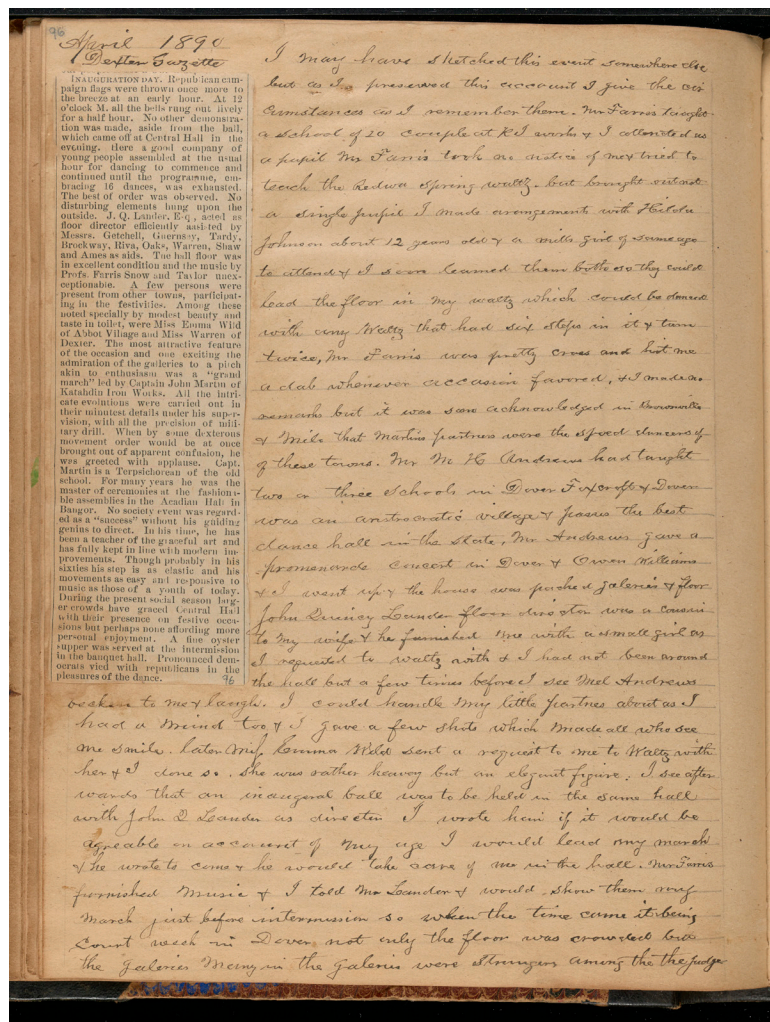 96
April 1890
Dexter Gazette
INAUGURATION DAY. Republican cam-
paign flags were thrown once more to
the breeze at an early hour. At 12
o'clock M. all the bells rung out lively
for a half hour. No other demonstra-
tion was made, aside from the ball,
which came off at Central Hall in the
evening. Here a good company of
young people assembled at the usual
hour for dancing to commence and
continued until the programme, em-
bracing 16 dances, was exhausted.
The best of order was observed. No
disturbing elements hung upon the
outside. J. Q. Lander, Esq, acted as
floor director efficiently assisted by
Messrs. Getchell, Guernsey, Tardy,
Brockway, Riva, Oaks, Warren, Shaw
and Ames as aids. The hall floor was
in excellent condition and the music by
Profs. Farris Snow and Taylor unex-
ceptionable. A few persons were
present from other towns, participat-
ing in the festivities. Among these
noted specially by modest beauty and
taste in toilet, were Miss Emma Wild
of Abbot Village and Miss Warren of
Dexter. The most attractive feature
of the occasion and one exciting the
admiration of the galleries to a pitch
akin to enthusiasm was a "grand
march" led by Captain John Martin of
Katahdin Iron Works. All the intri-
cate evolutions were carried out in
their minutest details under his super-
vision, with all the precision of mili-
tary drill. When by some dexterous
movement order would be at once
brought out of apparent confusion, he
was greeted with applause. Capt.
Martin is a Terpsichorean of the old
school. For many years he was the
master of ceremonies at the fashiona-
ble assemblies in the Acadian Hall in
Bangor. No society event was regard-
ed as a "success" without his guiding
genius to direct. In his time, he has
been a teacher of the graceful art and
has fully kept in line with modern im-
provements. Though probably in his
sixties his step is as elastic and his
movements as easy and responsive to
music as those of a youth of today.
During the present social season larg-
er crowds have graced Central Hall
with their presence on festive occa-
sions but perhaps none affording more
personal enjoyment. A fine oyster
supper was served at the intermission
in the banquet hall. Pronounced dem-
ocrats vied with republicans in the
pleasures of the dance.
96
I may have sketched this event somewhere else
but as I preserved this account I give the cir
cumstances as I remember them. Mr Farris taught
a school of 20 couple at K I works & I attended as
a pupil Mr Farris took no notice of me & tried to
teach the Redwa Spring waltz. but brought out not
a single pupil I made arangements with Hilda
Johnson about 12 years old & a mills girl of same age
to attend & I soon learned them bothe so they could
lead the floor in my waltz which could be danced
with any Waltz that had six steps in it & turn
twice, Mr Farris was pretty cross and hit me
a dab whenever occasion favored, & I made no
remarks but it was soon acknowledged in Brownville
& Milo that Martins partners were the spoed dancers of
of these towns. Mr M H Andrews had taught
two or three schools in Dover Foxcroft & Dover
was an aristrocratic village & posses the best
dance hall in the State, Mr Andrews gave a
promenade concert in Dover & Owen Williams
& I went up & the house was packed galeries & floor
John Quincy Lander floor director was a cousin
to my wife & he furnished me with a small girl as
I requested to waltz with & I had not been around
the hall but a few times before I see Mel Andrews
becken to me & laugh. I could handle my little partner about as I
had a mind too, & I gave a few shots which made all who see
me smile. later Miss Emma Wild sent a request to me to Waltz with
her & I done so. She was rather heavey but an elegant figure. I see after
wards that an inaugeral ball was to be held in the same hall
with John Q Leander as director I wrote him if it would be
agreable on account of my age I would lead my march
& he wrote to come & he would take care of me in the hall. Mr Farris
furnished Music & I told Mr Landor I would show them my
March just before intermission so when the time came it being
Court week in Dover not only the floor was crowded but
the galeries Many in the galeries were strangers among the the judge